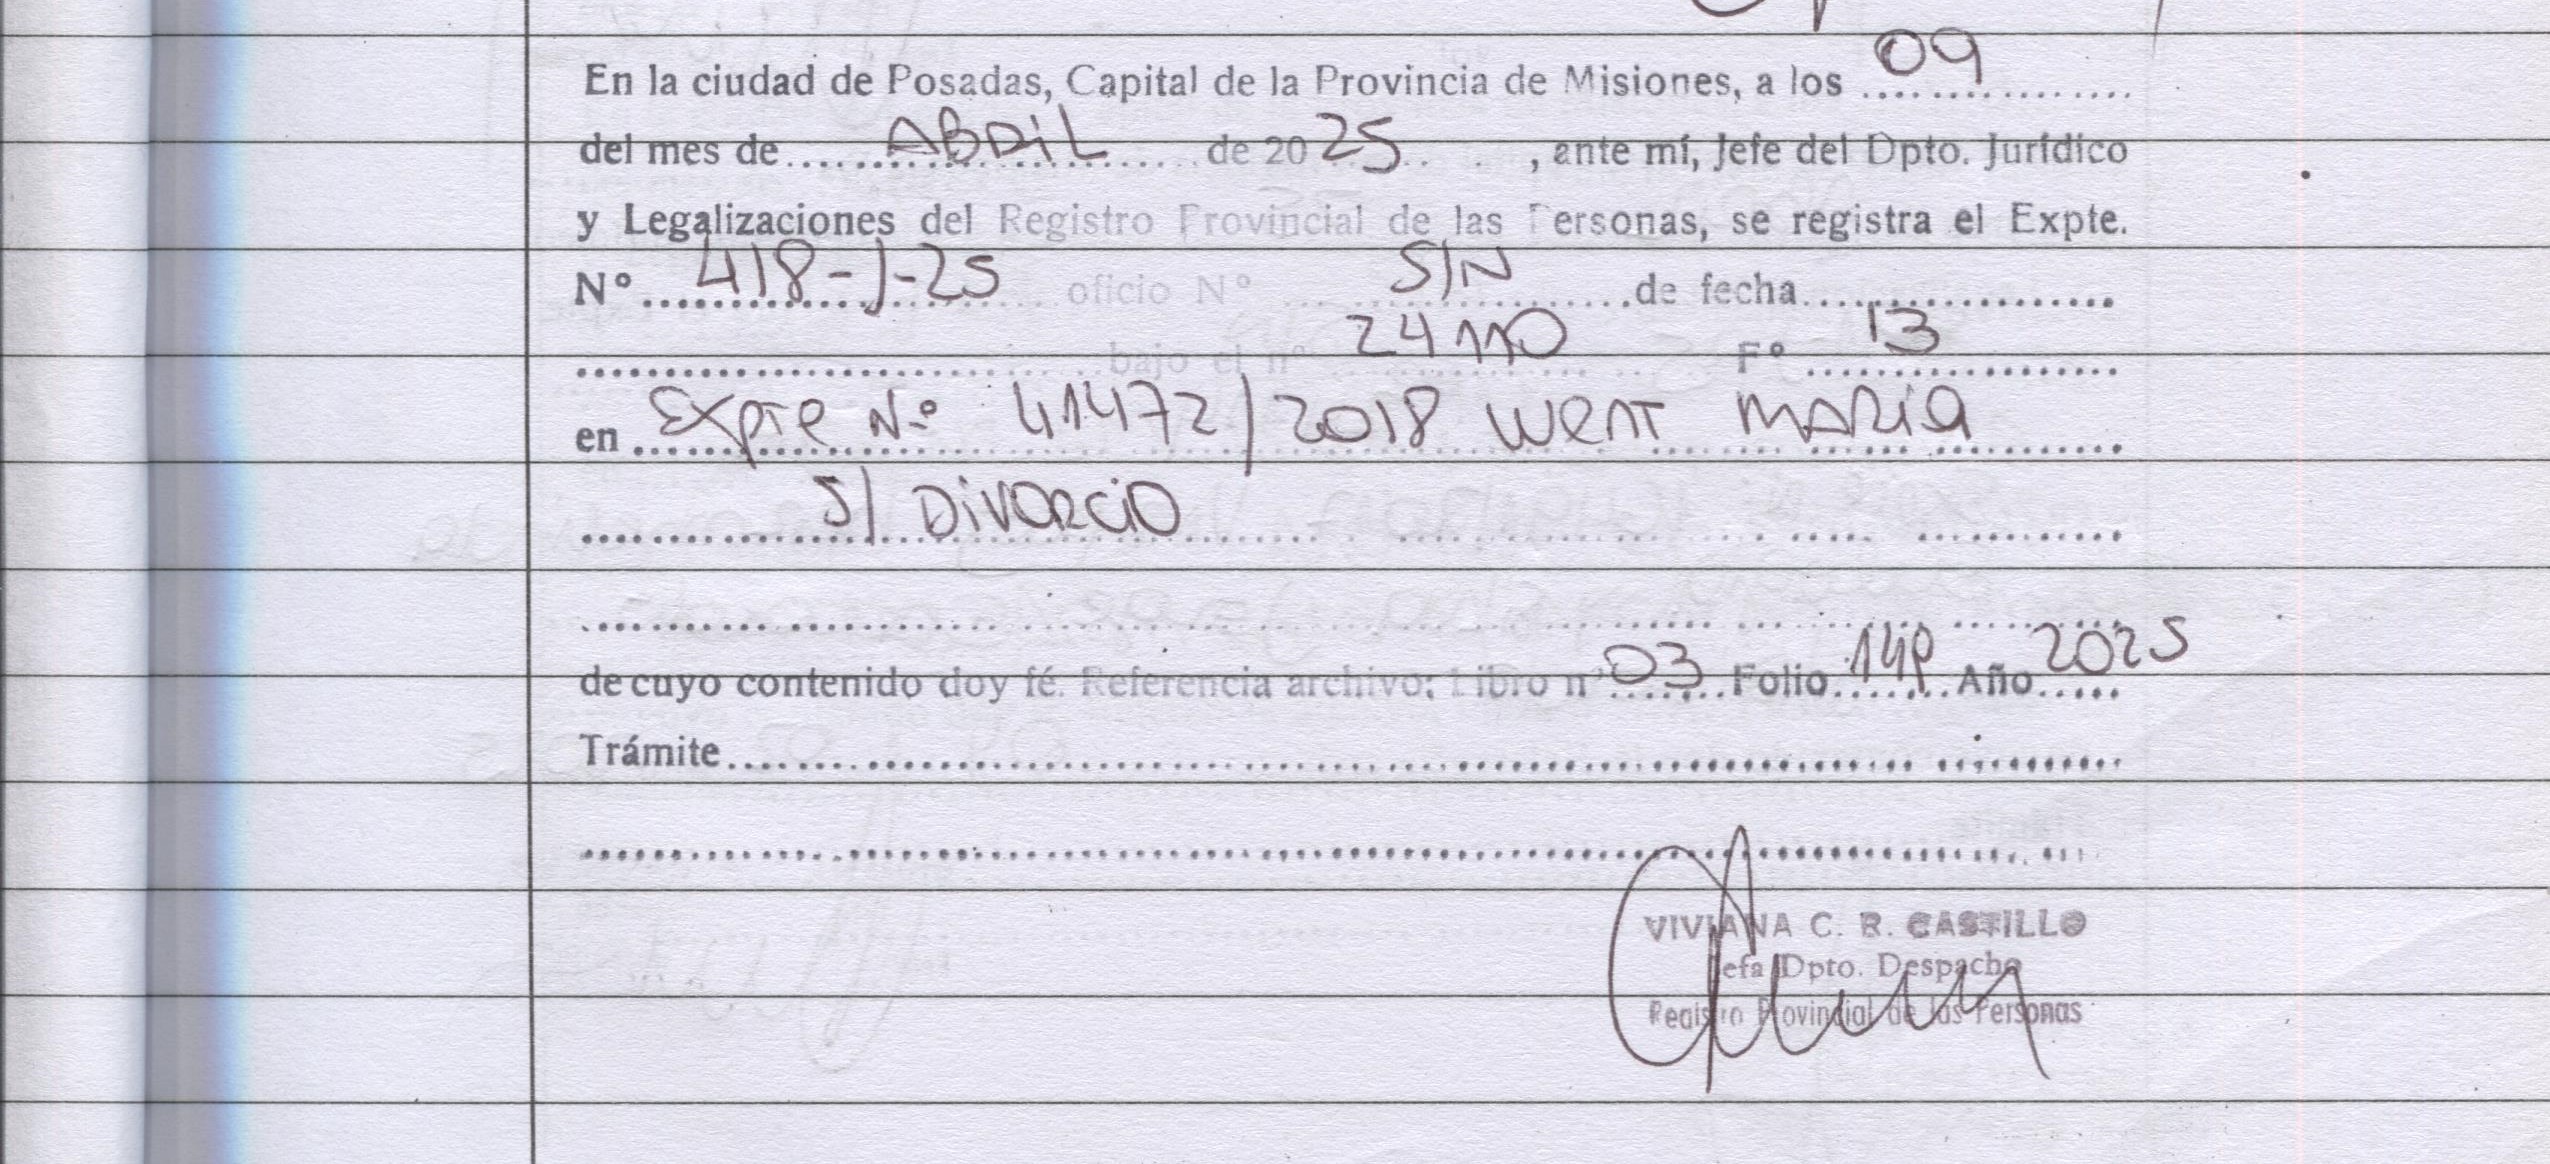 En la ciudad de Posadas, Capital de la Provincia de Misiones, a los 09
del mes de ABRIL de 2025, ante mí, Jefe del Dpto. Jurídico
y Legalizaciones del Registro Provincial de las Personas, se registra el Expte.
N° 418-J-25 oficio N° S/N de fecha
bajo el n° 24110 F° 13
en Expte N° 41472/2018 Went Maria
S/ Divorcio
de cuyo contenido doy fé. Referencia archivo: Libro n° 03 Folio Año 2025
Trámite
VIVIANA C. R. CASTILLO
Jefa Dpto. Despacho
Registro Provincial de las Personas